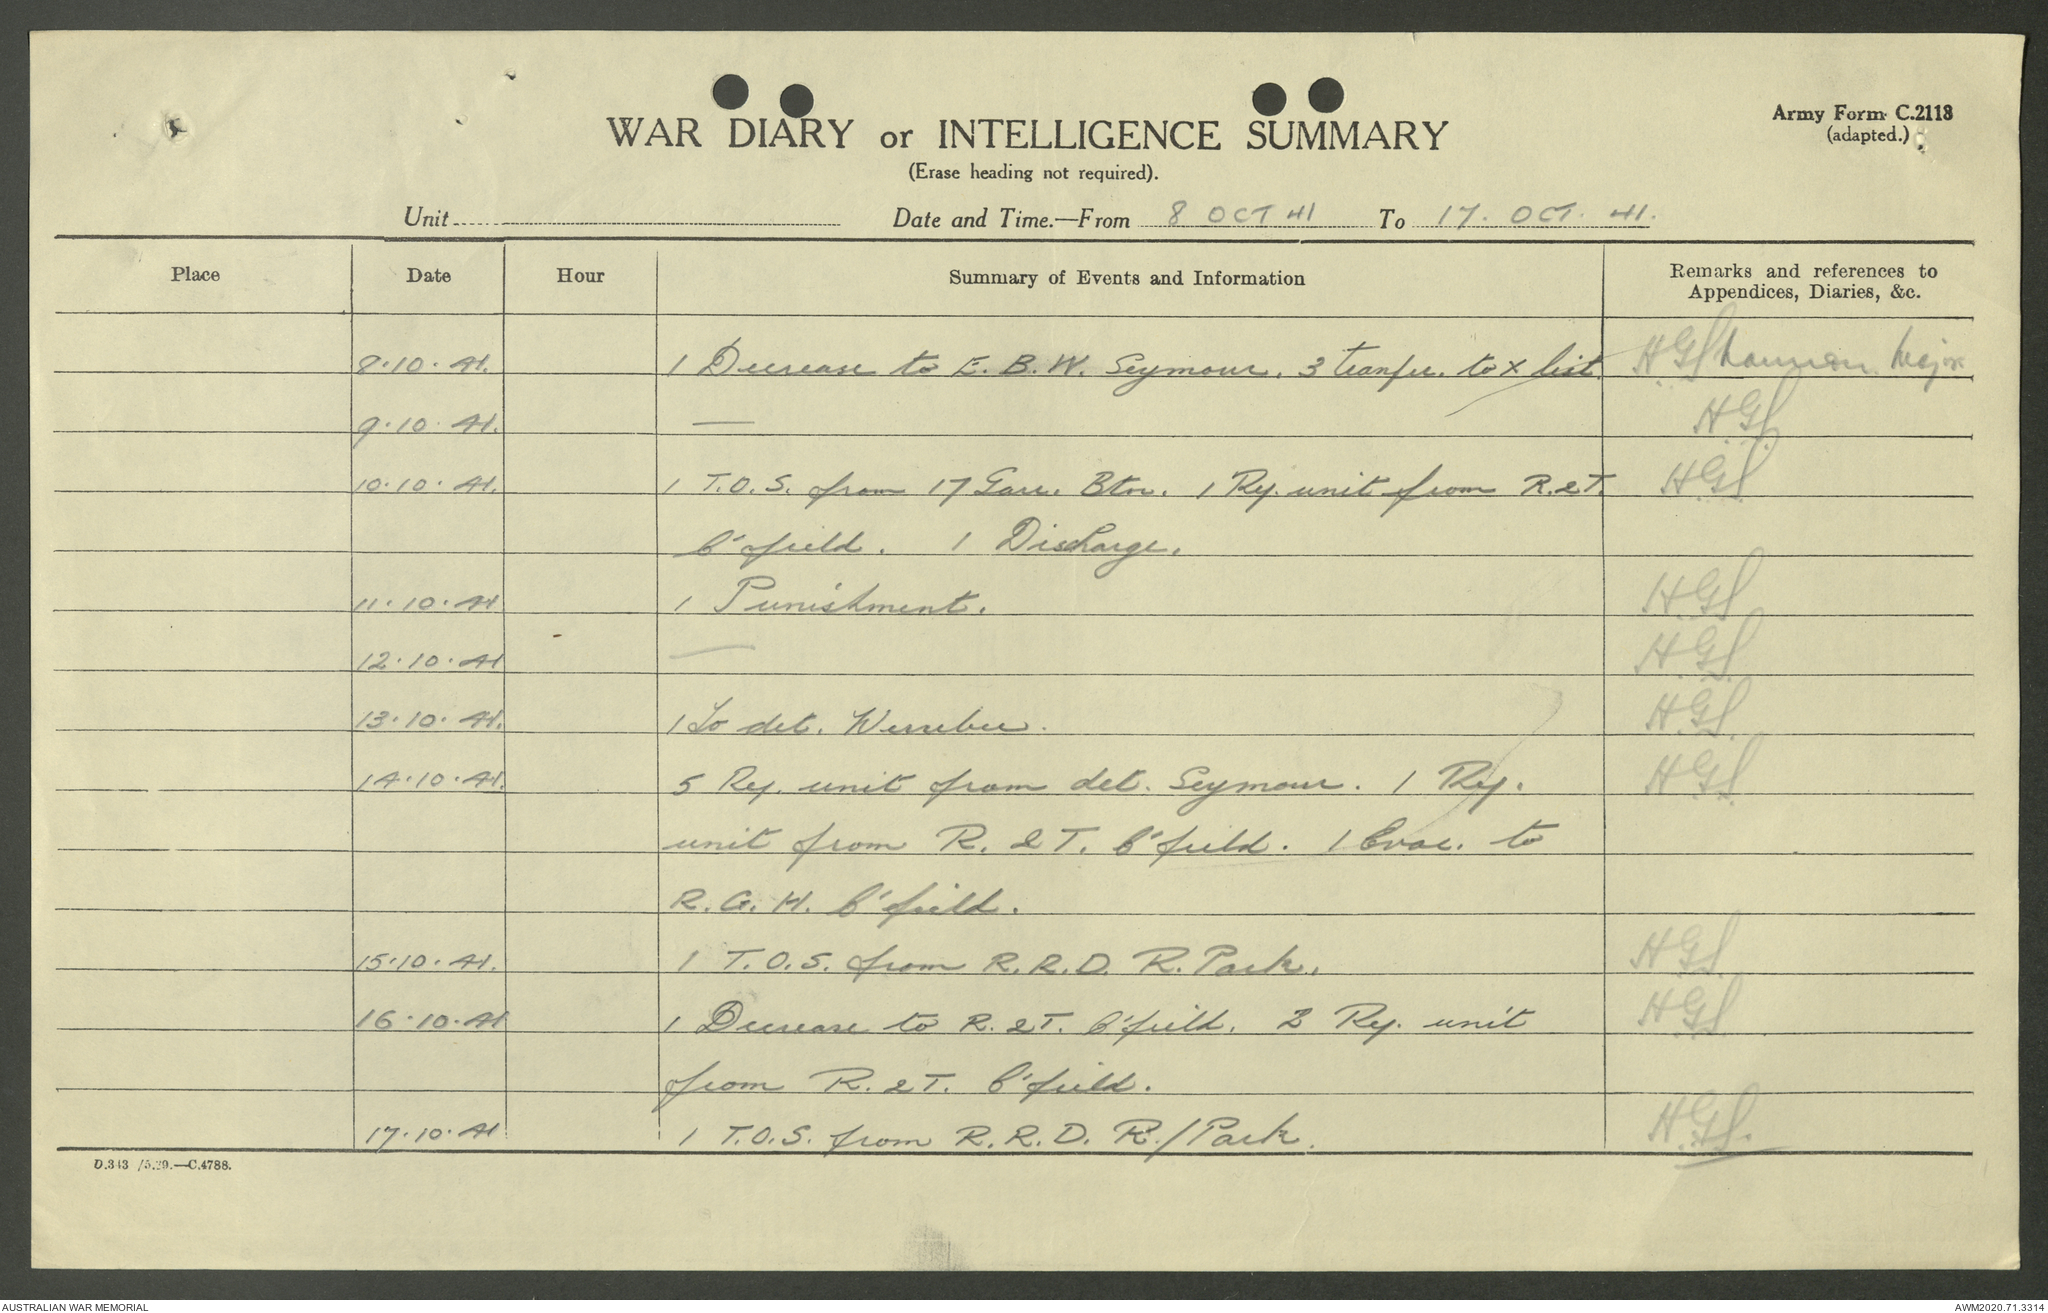 WAR DIARY or INTELLIGENCE SUMMARY
Army Form C.2118
(adapted.)
(Erase heading not required).
Unit
Date and Time.—From 8 OCT 41 To 17. OCT. 41.
Place Date Hour Summary of Events and Information Remarks and references to
Appendices, Diaries, &c.
8.10.41. 1 Decrease to E. B. W. Seymour. 3 tranfer. to X list. H.G. Shannon. Major
9.10.41. — H.G.S.
10.10.41. 1 T.O.S. from 17 Garr. Btn. 1 Rej. unit from R.&T. H.G.S.
C'field. 1 Discharge.
11.10.41 1 Punishment. H.G.S
12.10.41 — H.G.S.
13.10.41. 1 To det. Werribee. H.G.S.
14.10.41. 5 Rej. unit from det. Seymour. 1 Rej. H.G.S.
unit from R. & T. C'field. 1 Evac. to
R.G.H. C'field.
15.10.41. 1 T.O.S. from R.R.D. R. Park. H.G.S.
16.10.41 1 Decrease to R. &T. C'field. 2 Rej. unit H.G.S.
from R. &T. C'field.
17.10.41 1 T.O.S. from R.R.D. R./Park. H.G.S.
D.343 /5.39.—C.4788.
AUSTRALIAN WAR MEMORIAL
AWM2020.71.3314